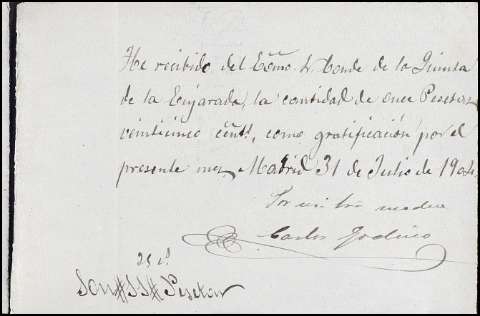 He recibido del Exmo Sr Conde de la Quinta
de la Enjarada, la cantidad de once Pesetas
veinticinco cénts, como gratificación por el
presente mes. Madrid 31 de Julio de 1904.
Por mi madre
Carlos
25 cs.
Son # 11 # Pesetas